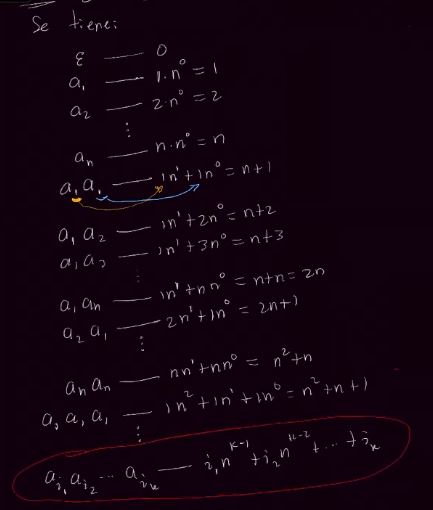 Se tiene:
ε — 0
a₁ — 1·n⁰ = 1
a₂ — 2·n⁰ = 2
⋮
aₙ — n·n⁰ = n
a₁a₁ — 1n¹+1n⁰ = n+1
a₁a₂ — 1n¹+2n⁰ = n+2
a₁a₃ — 1n¹+3n⁰ = n+3
⋮
a₁aₙ — 1n¹+nn⁰ = n+n = 2n
a₂a₁ — 2n¹+1n⁰ = 2n+1
⋮
aₙaₙ — nn¹+nn⁰ = n²+n
a₁a₁a₁ — 1n²+1n¹+1n⁰ = n²+n+1
⋮
a_{i₁}a_{i₂} ... a_{iₖ} — i₁n^{k-1}+i₂n^{k-2}+...+iₖ